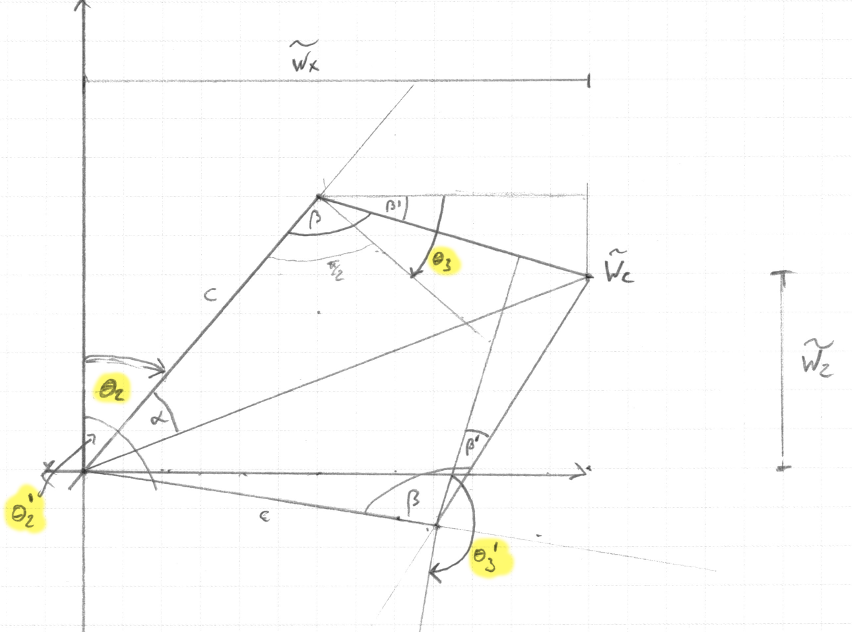 W̃x
β
β'
θ3
π/2
W̃c
c
W̃z
θ2
α
β'
θ2'
β
c
θ3'